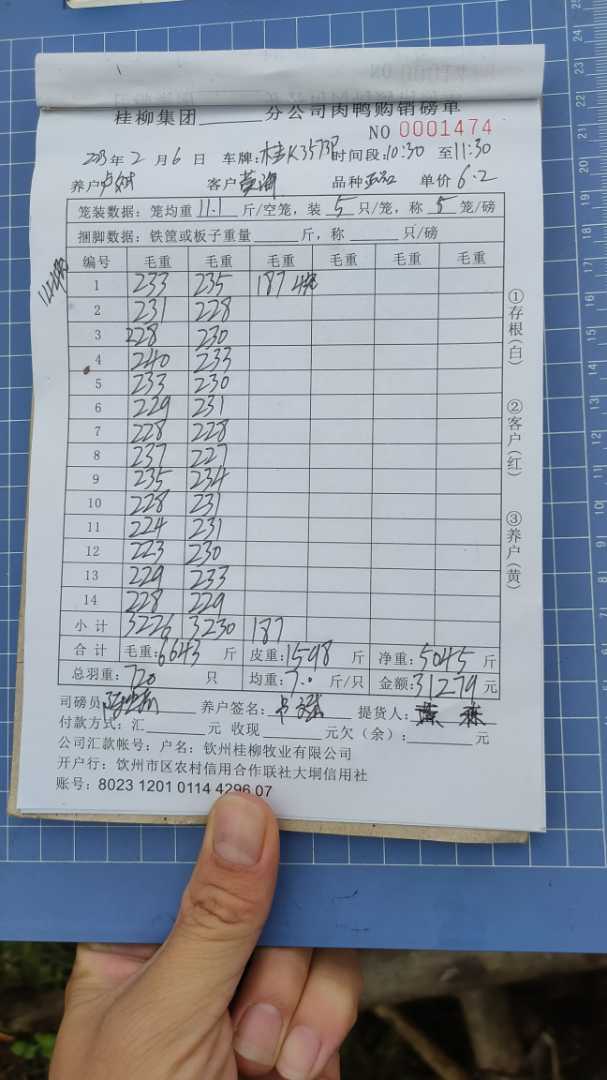 桂柳集团______分公司肉鸭购销磅单
NO 0001474
2023年2月6日 车牌:桂K3573P 时间段:10:30 至11:30
养户 客户 品种 单价6.2
笼装数据:笼均重11.1斤/空笼,装5只/笼,称5笼/磅
捆脚数据:铁筐或板子重量____斤,称____只/磅
编号 毛重 毛重 毛重 毛重 毛重 毛重
1 233 235 187
2 231 228
3 228 230
4 240 233
5 233 230
6 229 231
7 228 228
8 237 227
9 235 234
10 228 231
11 224 231
12 223 230
13 229 233
14 228 229
小计 3226 3230 187
合计 毛重:6643斤 皮重:1598斤 净重:5045斤
总羽重:720只 均重:7.0斤/只 金额:31279元
司磅员 养户签名: 提货人:
付款方式:汇____元 收现____元欠(余):____元
公司汇款帐号:户名:钦州桂柳牧业有限公司
开户行:钦州市区农村信用合作联社大垌信用社
账号:8023 1201 0114 4296 07
①存根(白)
②客户(红)
③养户(黄)